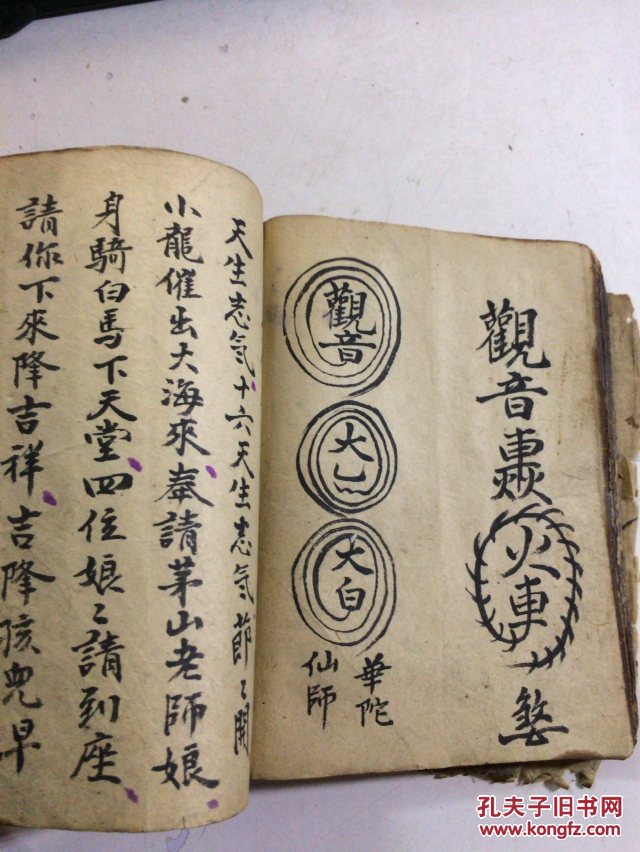 觀音
火車
觀音
大
大白
華陀
仙師
天生志气十六天生志气節〻開
小龍催出大海來奉請茅山老師娘
身騎白馬下天堂四位娘〻請到座
請你下來降吉祥吉降孩兒早
孔夫子旧书网
www.kongfz.com